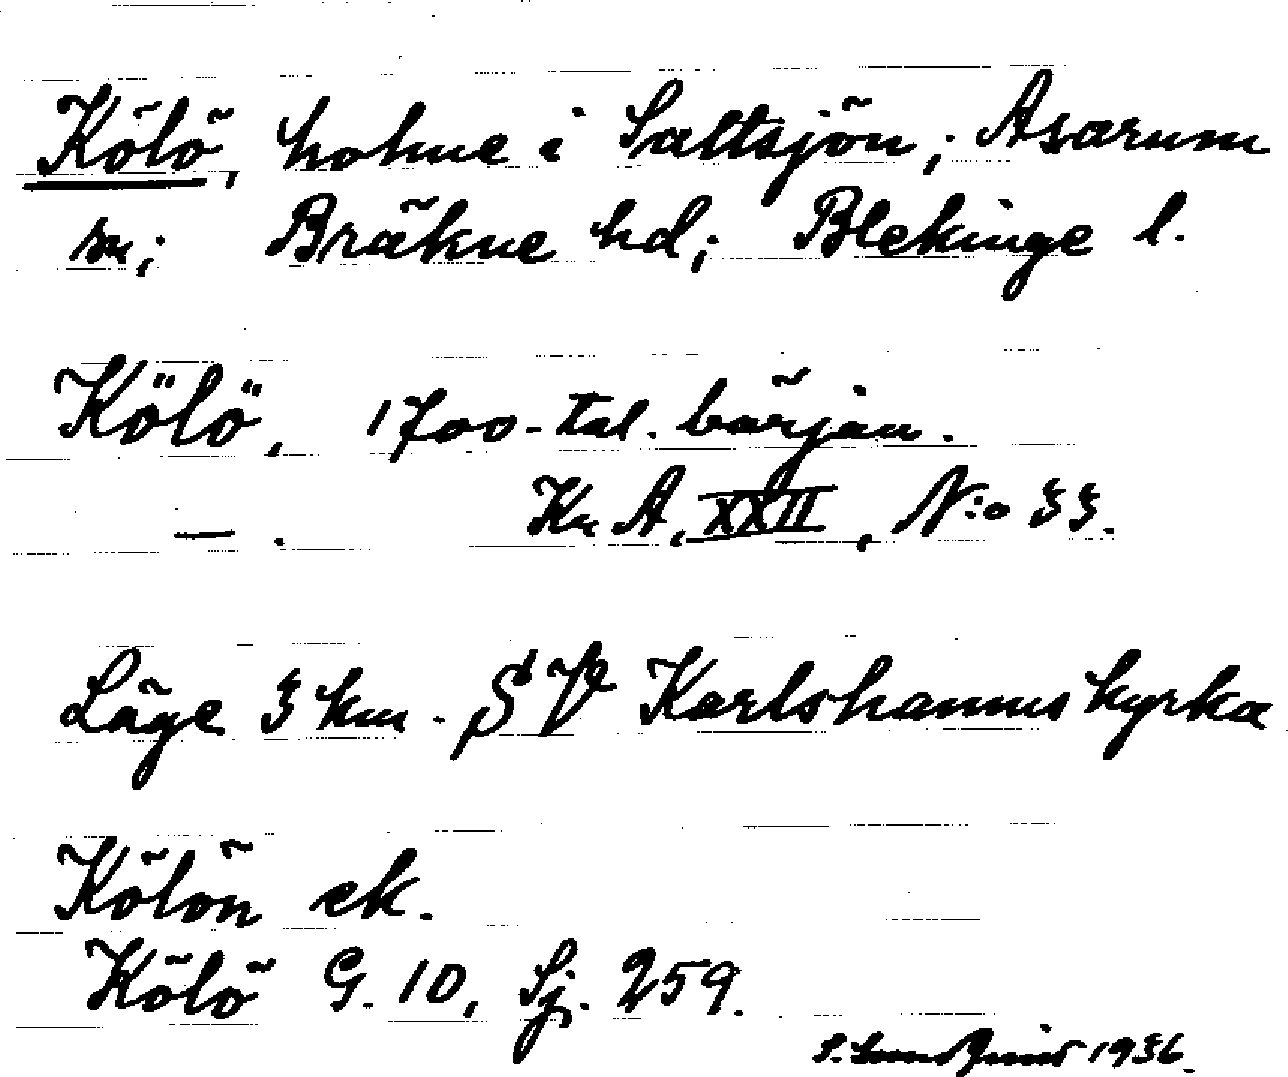 Kölö, holme i Saltsjön; Asarum
sn; Bräkne hd; Blekinge l.
Kölö, 1700-tal. början.
— . Kr A, XXII, N:o 33.
Läge 3 km. SV Karlshamns kyrka
Kölön ek.
Kölö G. 10, Sj. 259.
1936.